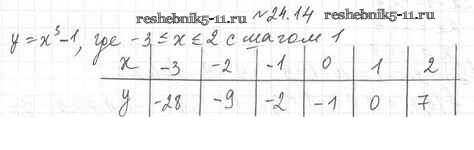 reshebnik5-11.ru №24.14 reshebnik5-11.ru
y = x³-1, где -3 ≤ x ≤ 2 с шагом 1
x -3 -2 -1 0 1 2
y -28 -9 -2 -1 0 7